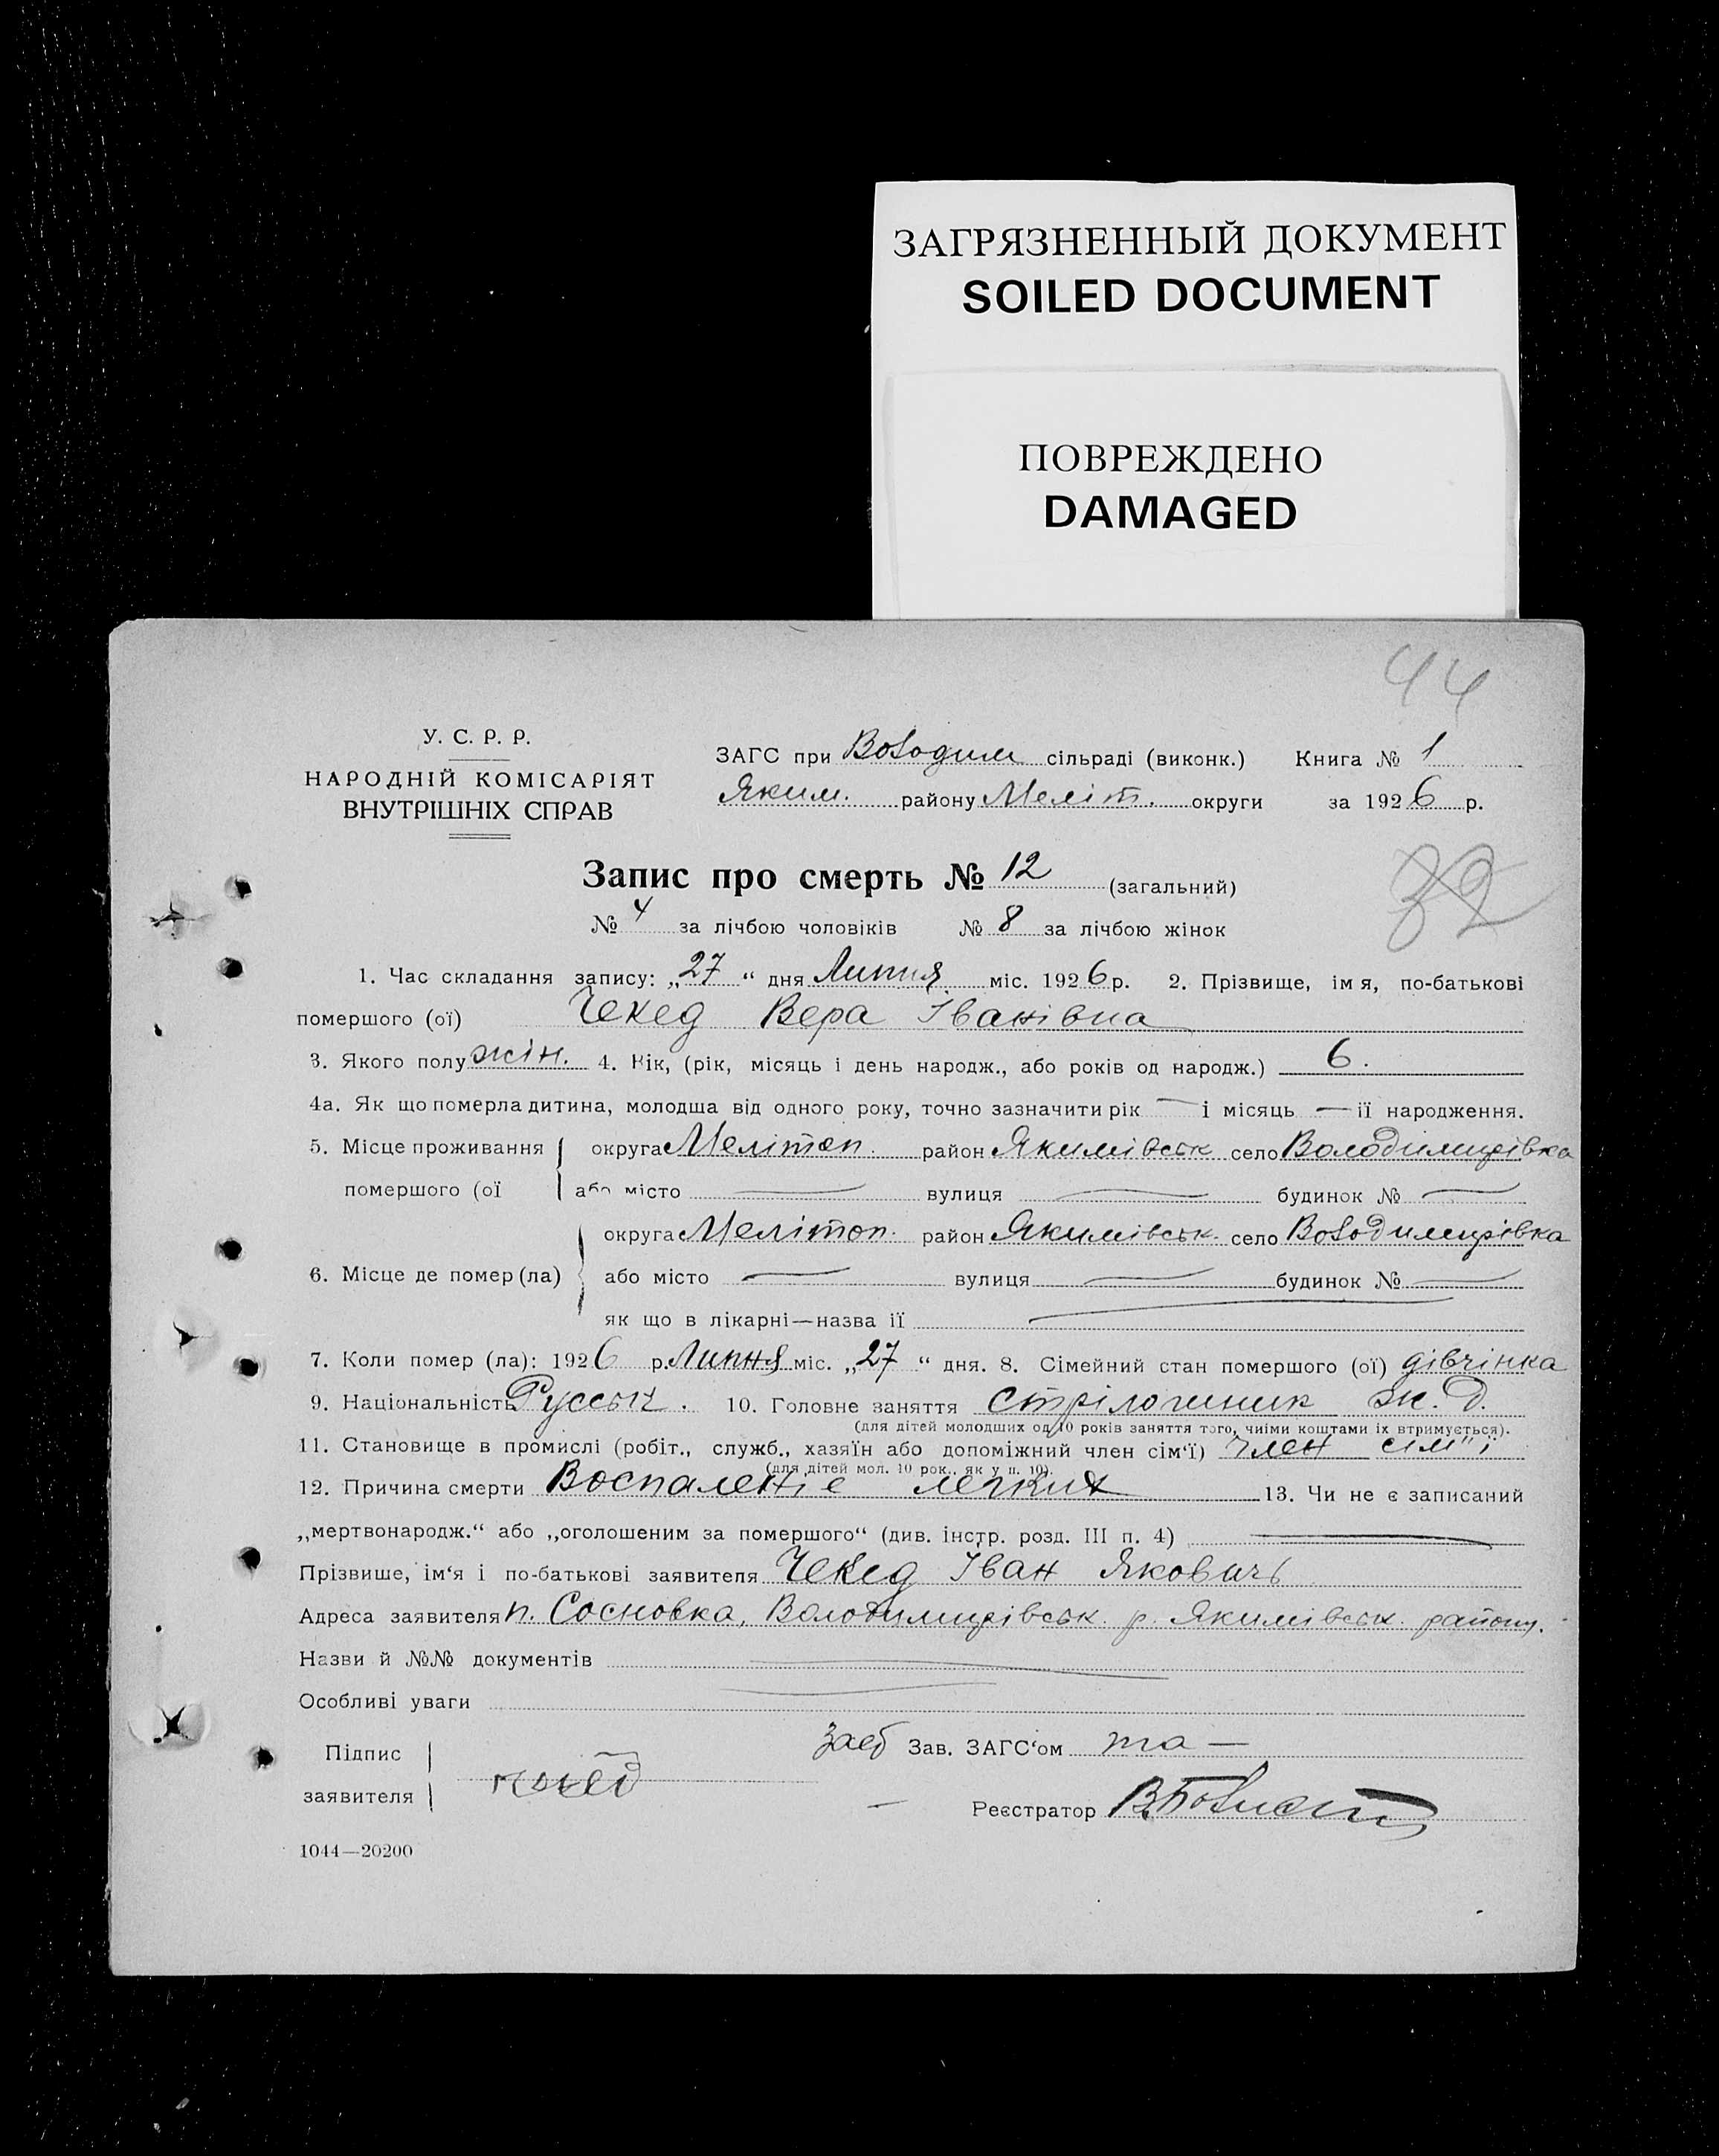 ЗАГРЯЗНЕННЫЙ ДОКУМЕНТ
SOILED DOCUMENT
ПОВРЕЖДЕНО
DAMAGED
44
У. С. Р. Р.
НАРОДНІЙ КОМІСАРІЯТ
ВНУТРІШНІХ СПРАВ
ЗАГС при Володим сільраді (виконк.) Книга № 1
Яким. району Меліт. округи за 1926 р.
Запис про смерть № 12 (загальний)
32
№ 4 за лічбою чоловіків № 8 за лічбою жінок
1. Час складання запису: „27“ дня Липня міс. 1926 р. 2. Прізвище, імя, по-батькові
помершого (ої) Чекед Вера Іванівна
3. Якого полу жін. 4. Вік, (рік, місяць і день народж., або років од народж.) 6.
4а. Як що померла дитина, молодша від одного року, точно зазначити рік — і місяць — її народження.
5. Місце проживання помершого (ої округа Мелітоп. район Якимівськ село Володимирівка
або місто — вулиця — будинок № —
6. Місце де помер (ла) округа Мелітоп. район Якимівськ. село Володимирівка
або місто — вулиця — будинок № —
як що в лікарні—назва її —
7. Коли помер (ла): 1926 р. Липня міс. „27“ дня. 8. Сімейний стан помершого (ої) дівчінка
9. Національність Русськ. 10. Головне заняття Стрілочник ж. д.
(для дітей молодших од 10 років заняття того, чиїми коштами їх втримується).
11. Становище в промислі (робіт., служб., хазяїн або допоміжний член сім‘ї) член сім"ї
(для дітей мол. 10 рок., як у п. 10).
12. Причина смерти Воспаленіе легких 13. Чи не є записаний
„мертвонародж.“ або „оголошеним за помершого“ (див. інстр. розд. III п. 4) —
Прізвище, ім‘я і по-батькові заявителя Чекед Іван Яковичь
Адреса заявителя п. Сосновка, Володимирівськ. р. Якимівськ. району.
Назви й №№ документів —
Особливі уваги —
Підпис заявителя
Зав. ЗАГС‘ом та —
Реєстратор
1044—20200